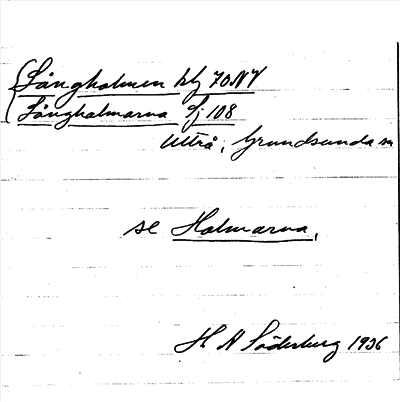 Långholmen klj 70NV
Långholmarna Sj 108
Utterå, Grundsunda sn
se Holmarna,
H A Söderberg 1936